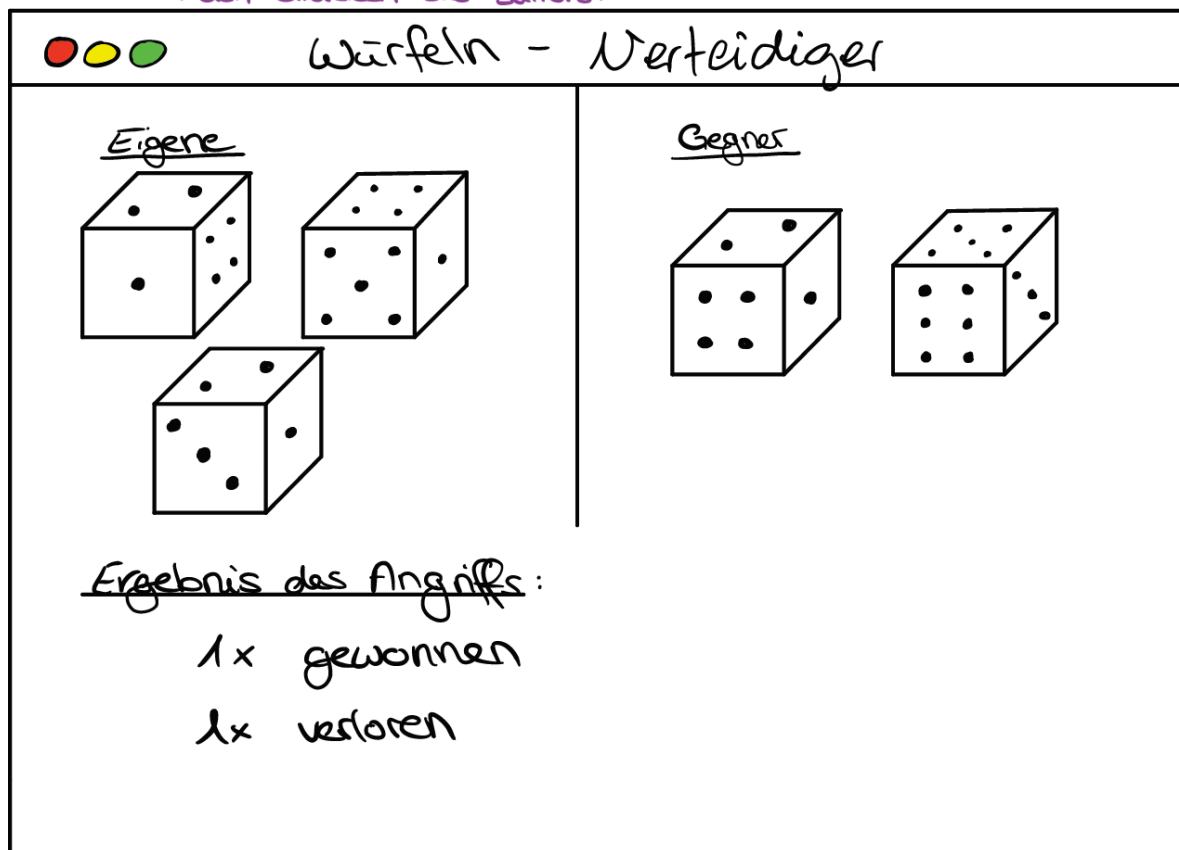 Würfeln - Verteidiger
Eigene
Gegner
Ergebnis des Angriffs:
1x gewonnen
1x verloren